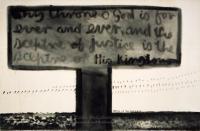 thy throne O God is for
ever and ever, and the
sceptre of justice is the
sceptre of His Kingdom